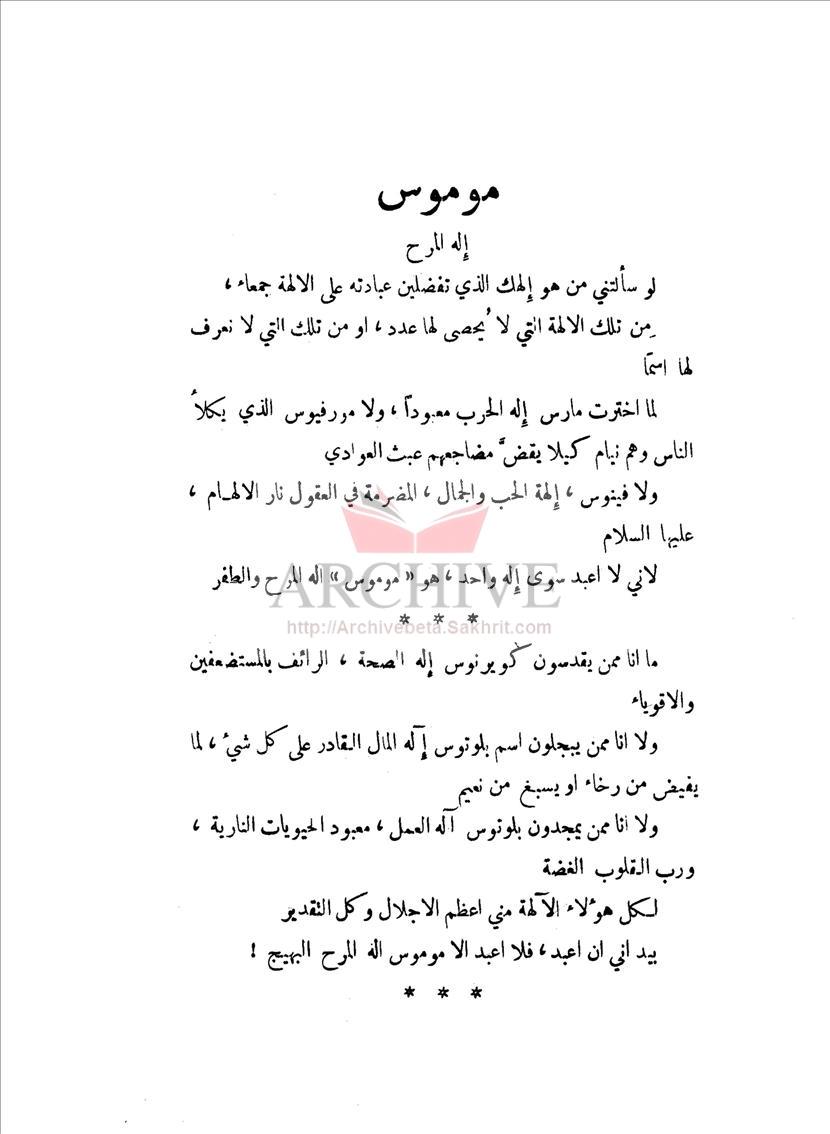 موموس
إله المرح
لو سألتني من هو إلهك الذي تفضلين عبادته على الالهة جمعاء ،
من تلك الالهة التي لا يُحصى لها عدد ، او من تلك التي لا نعرف
لها اسمًا
لما اخترت مارس إله الحرب معبوداً ، ولا مورفيوس الذي يكلأُ
الناس وهم نيام كيلا يقضَّ مضاجعهم عبث العوادي
ولا فينوس ، إلهة الحب والجمال ، المضرمة في العقول نار الالهام ،
عليها السلام
لاني لا اعبد سوى إله واحد ، هو « موموس » اله المرح والطفر
ARCHIVE
http://Archivebeta.Sakhrit.com
* * *
ما انا ممن يقدسون كويرنوس إله الصحة ، الرائف بالمستضعفين
والاقوياء
ولا انا ممن يبجلون اسم بلوتوس إآله المال القادر على كل شيء ، لما
يفيض من رخاء او يسبغ من نعيم
ولا انا ممن يمجدون بلوتوس آله العمل ، معبود الحيويات النارية ،
ورب القلوب الغضة
لكل هؤلاء الآلهة مني اعظم الاجلال وكل التقدير
بيد اني ان اعبد ، فلا اعبد الا موموس اله المرح البهيج !
* * *